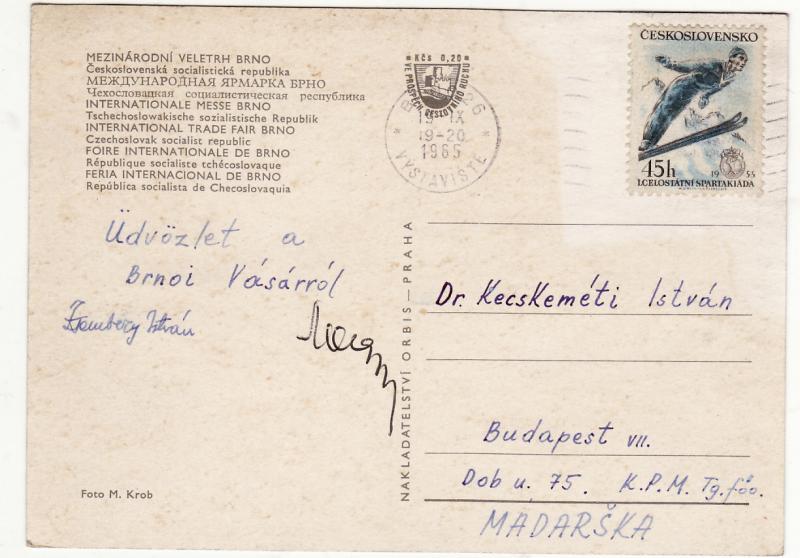 MEZINÁRODNÍ VELETRH BRNO
Československá socialistická republika
МЕЖДУНАРОДНАЯ ЯРМАРКА БРНО
Чехословацкая социалистическая республика
INTERNATIONALE MESSE BRNO
Tschechoslowakische sozialistische Republik
INTERNATIONAL TRADE FAIR BRNO
Czechoslovak socialist republic
FOIRE INTERNATIONALE DE BRNO
République socialiste tchécoslovaque
FERIA INTERNACIONAL DE BRNO
República socialista de Checoslovaquia
Kčs 0,20
VE PROSPĚCH CESTOVNÍHO RUCHU
19 IX
19-20
1965
VÝSTAVIŠTĚ
ČESKOSLOVENSKO
45h
1955
I.CELOSTÁTNÍ SPARTAKIÁDA
Üdvözlet a
Brnoi Vásárról
István
NAKLADATELSTVÍ ORBIS—PRAHA
Dr. Kecskeméti István
Budapest VII.
Dob u. 75. K.P.M. Tg.föo.
MADARŠKA
Foto M. Krob